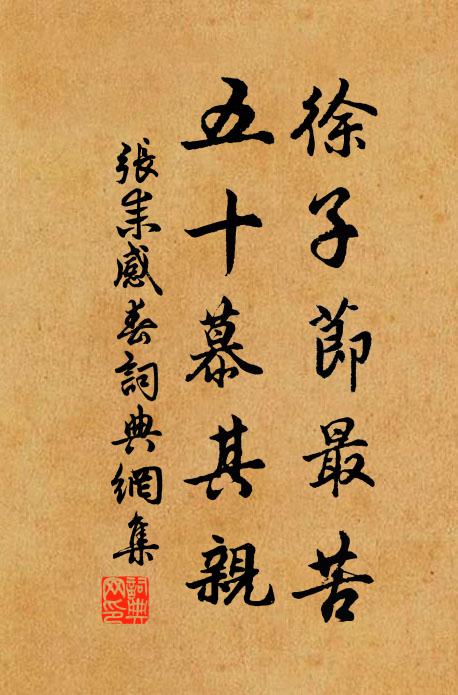 徐子節最苦
五十慕其親
張耒感春詞典網集
詞典網印